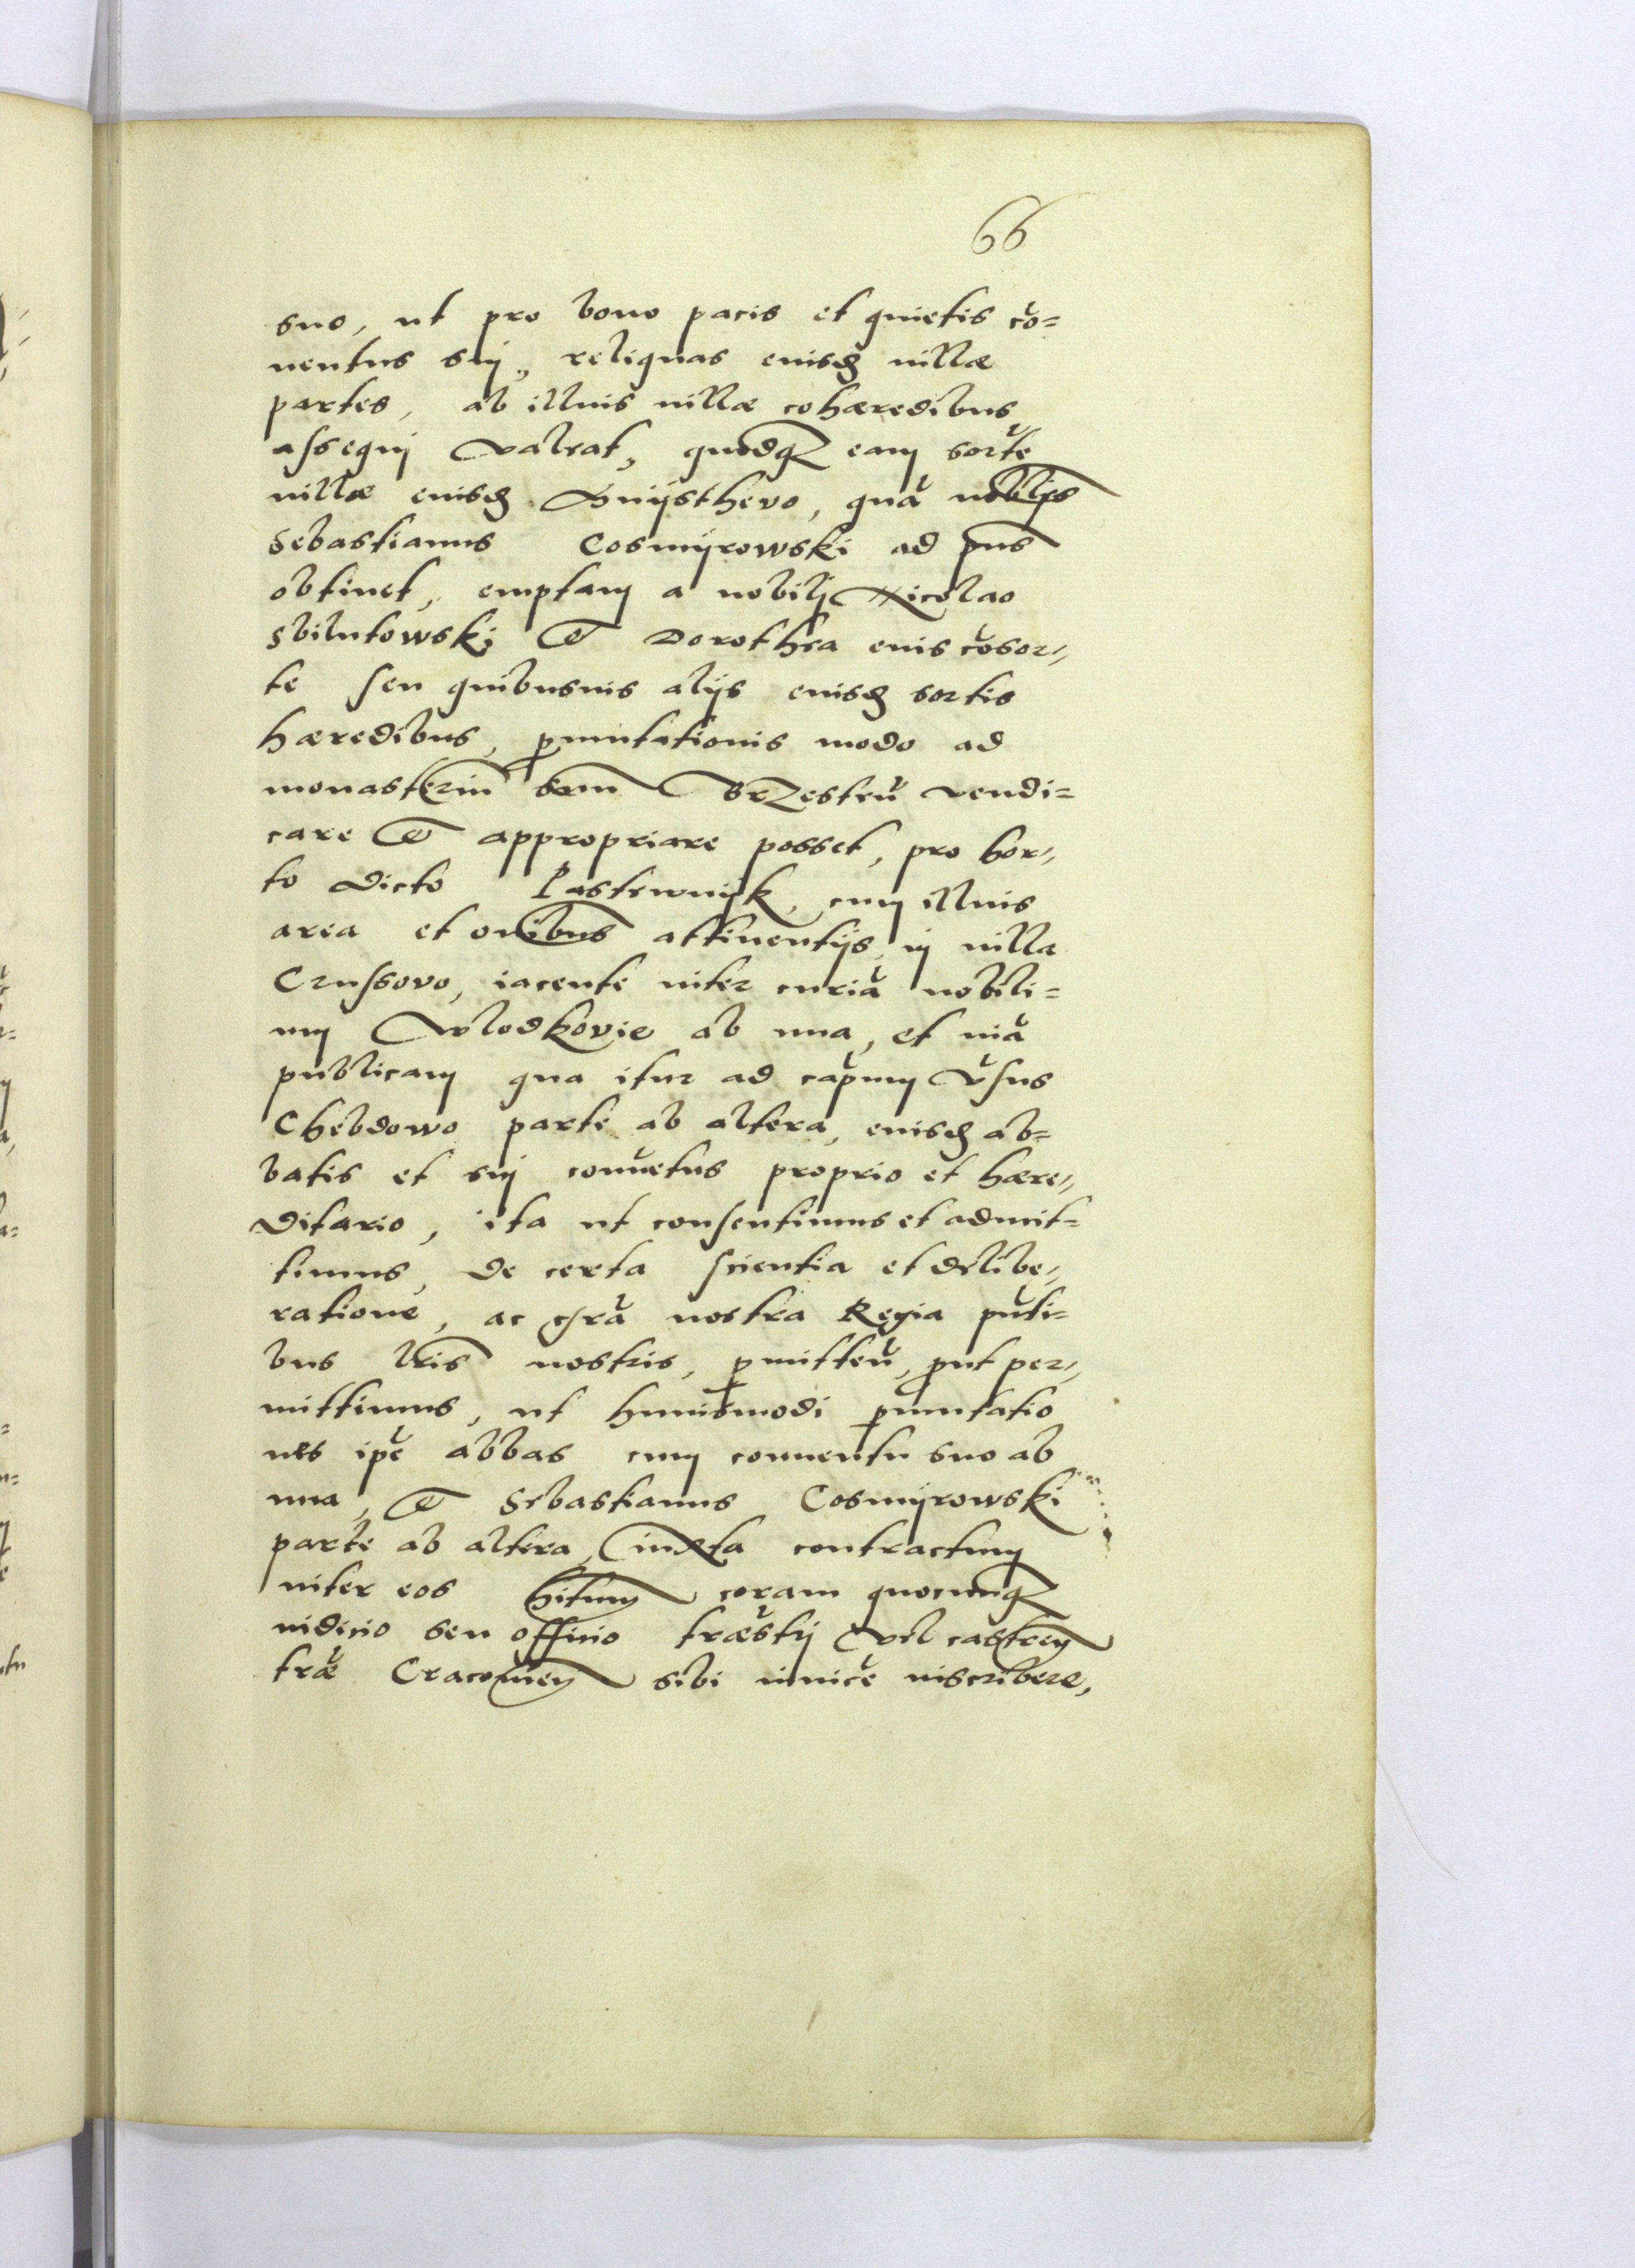 66
suo, ut pro bono pacis et quietis cō=
uentus sui, reliquas eiusdē uillæ
partes, ab illius uillæ cohæredibus
assequi valeat, quodq; eam sortē
uillæ eiusdē Gnijsthevo, quā nobilis
Sebastianus Cosmijrowski ad pn̄s
obtinet, emptam a nobili Nicolao
Sbilutowski et Dorothea eius cōsor=
te seu quibusuis alijs eiusdē sortis
hæredibus, ꝑmutationis modo ad
monasteriū suum Brzesteñ vendi=
care et appropriare posset, pro hor=
to dicto Pastewnijk, cum illius
area et oñibus attinentijs in uilla
Crussovo, iacente inter curiā nobili=
um Wlodkovie ab una, et uiā
publicam qua itur ad cāpum v̄sus
Chebdowo parte ab altera, eiusdē ab=
batis et sui conuētus proprio et hære=
ditario, ita ut consentimus et admit=
timus, de certa scientia et delibe=
ratione, ac gr̄a nostra Regia pn̄ti=
bus lr̄is nostris, ꝑmitteñ, ꝓut per=
mittimus, ut huiusmodi ꝑmutatio
nes ip̄e abbas cum conuentu suo ab
una, et Sebastianus Cosmijrowski
parte ab altera, iuxta contractum
inter eos h̄itum coram quocunq;
iudicio seu officio træstri vel castreñ
træ Cracouieñ sibi inuicē inscribere,